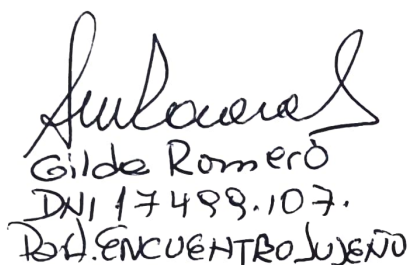 Gilda Romero
DNI 17499.107.
Part. ENCUENTRO JUJEÑO